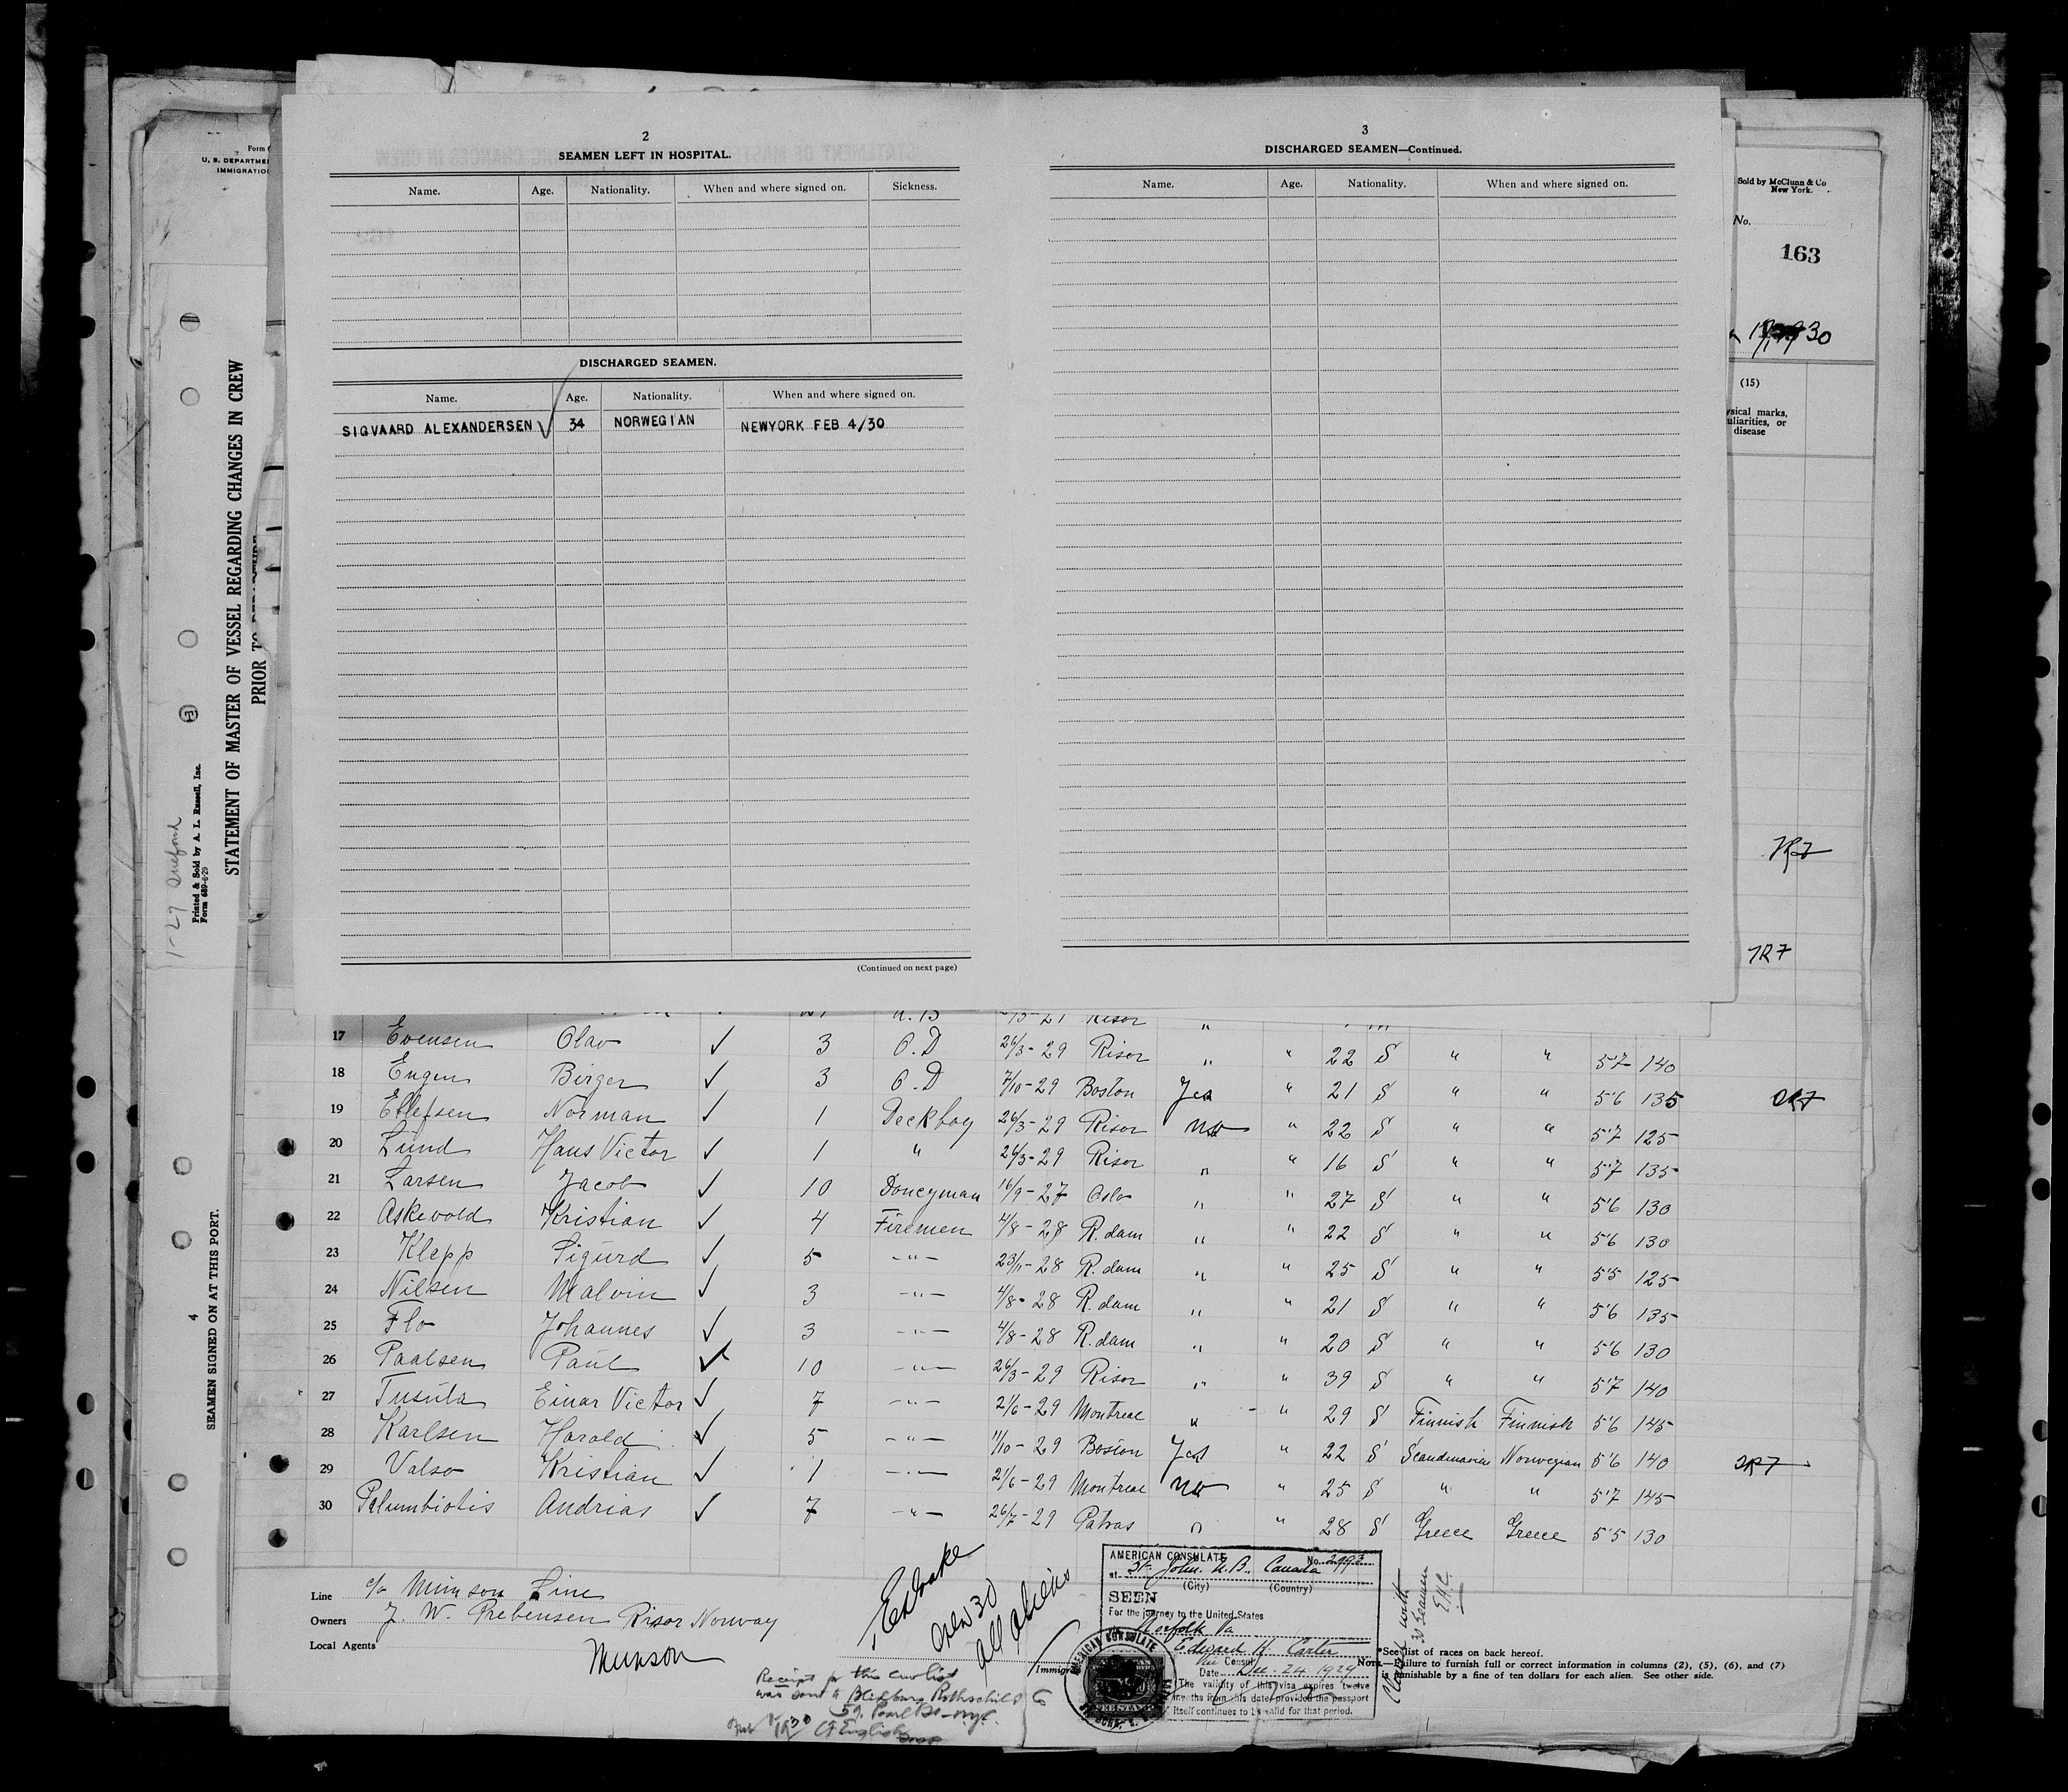 Form
U. S. DEPARTME
IMMIGRATIO
STATEMENT OF MASTER OF VESSEL REGARDING CHANGES IN CREW
PRIOR TO
Printed & Sold by A. L. Russell, Inc.
Form 689-6-29
4
SEAMEN SIGNED ON AT THIS PORT.
2
SEAMEN LEFT IN HOSPITAL.
Name. Age. Nationality. When and where signed on. Sickness.
DISCHARGED SEAMEN.
Name. Age. Nationality. When and where signed on.
SIGVAARD ALEXANDERSEN ✓ 34 NORWEGIAN NEWYORK FEB 4/30
(Continued on next page)
3
DISCHARGED SEAMEN—Continued.
Name. Age. Nationality. When and where signed on.
Sold by McClunn & Co
New York.
No.
163
30
(15)
ysical marks,
uliarities, or
disease
7R7
17 Evensen Olav ✓ 3 O.D 26/3-29 Risor " " 22 S " " 5'7 140
18 Engen Birger ✓ 3 O.D 7/10-29 Boston Yes " 21 S " " 5'6 135
19 Ellefsen Norman ✓ 1 Deckboy 26/3-29 Risor no " 22 S " " 5'7 125
20 Lund Hans Victor ✓ 1 " 26/3-29 Risor " " 16 S " " 5'7 135
21 Larsen Jacob ✓ 10 Doneyman 16/9-27 Oslo " " 27 S " " 5'6 130
22 Askevold Kristian ✓ 4 Firemen 4/8-28 R.dam " " 22 S " " 5'6 130
23 Klepp Sigurd ✓ 5 -"- 23/11-28 R.dam " " 25 S " " 5'5 125
24 Nilsen Malvin ✓ 3 -"- 4/8-28 R.dam " " 21 S " " 5'6 135
25 Flo Johannes ✓ 3 -"- 4/8-28 R.dam " " 20 S " " 5'6 130
26 Paalsen Paul ✓ 10 -"- 26/3-29 Risor " " 39 S " " 5'7 140
27 Tusula Einar Victor ✓ 7 -"- 2/6-29 Montreal " " 29 S Finnish Finnish 5'6 145
28 Karlsen Harald ✓ 5 -"- 11/10-29 Boston Yes " 22 S Scandinavian Norwegian 5'6 140
29 Valso Kristian ✓ 1 -"- 2/6-29 Montreal no " 25 S " " 5'7 145
30 Palumbiotis Andrias ✓ 7 -"- 26/7-29 Patras " " 28 S Greece Greece 5'5 130
Line c/o Munson Line
Owners J. W. Prebensen Risor Norway
Local Agents
Munson
Crew 30
all aliens
Immigra
Receipt for this crewlist
was sent to Rothschild & Co
59 Pearl St - nyc.
English
AMERICAN CONSULATE No. 2993
at St. John, N.B., Canada
(City) (Country)
SEEN
For the journey to the United States
Norfolk Va
Edward H. Carter
Vice Consul
Date Dec. 24 1929
The validity of this visa expires twelve
months from this date, provided the passport
itself continues to be valid for that period.
AMERICAN CONSULATE
ST. JOHN, N. B.
with
30 Seamen
E.H.C.
*See list of races on back hereof.
NOTE.—Failure to furnish full or correct information in columns (2), (5), (6), and (7)
is punishable by a fine of ten dollars for each alien. See other side.